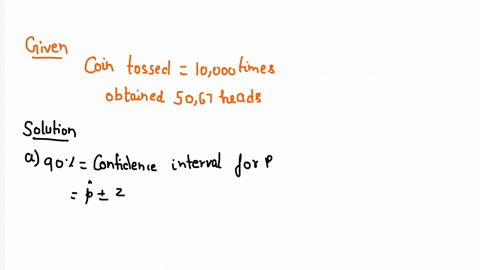 Given
Coin tossed = 10,000 times
obtained 50,67 heads
Solution
a) 90% = Confidence interval for P
= p̂ ± z